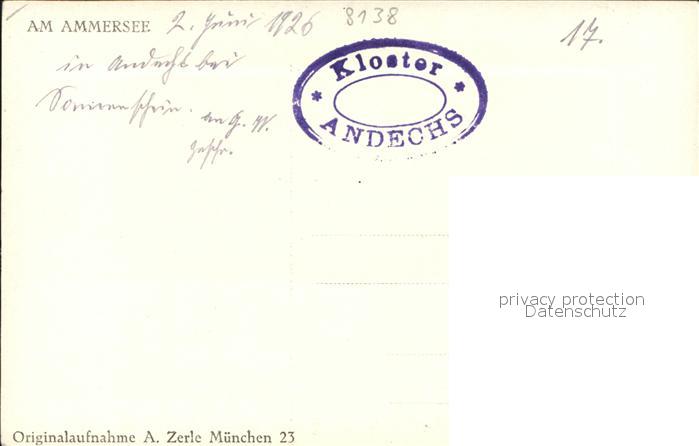 AM AMMERSEE 2. Juni 1926
8138
17.
in Andechs bei
Sonnenschein. an G. W.
geschr.
* Kloster *
ANDECHS
privacy protection
Datenschutz
Originalaufnahme A. Zerle München 23